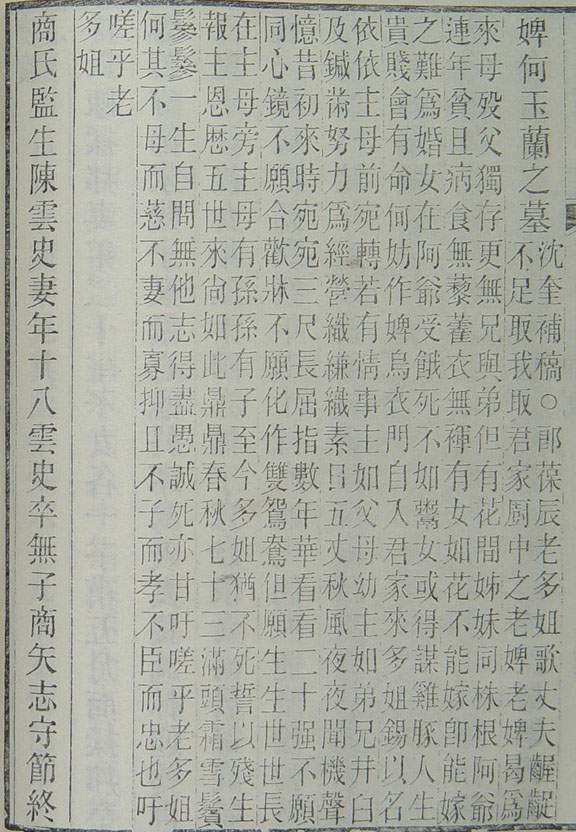 婢何玉蘭之墓沈奎補稿○郎葆辰老多姐歌丈夫齷齪
不足取我取君家廚中之老婢老婢曷爲
來母歿父獨存更無兄與弟但有花間姊妹同株根阿爺
連年貧且病食無藜藿衣無褌有女如花不能嫁卽能嫁
之難爲婚女在阿爺受餓死不如鬻女或得謀雞豚人生
貴賤會有命何妨作婢烏衣門自入君家來多姐錫以名
依依主母前宛轉若有情事主如父母幼主如弟兄井臼
及鍼黹努力爲經營織縑織素日五丈秋風夜夜聞機聲
憶昔初來時宛宛三尺長屈指數年華看看二十强不願
同心鏡不願合歡牀不願化作雙鴛鴦但願生生世世長
在主母旁主母有孫孫有子至今多姐猶不死誓以殘生
報主恩厯五世來尙如此鼎鼎春秋七十三滿頭霜雪鬢
鬖鬖一生自問無他志得盡愚誠死亦甘吁嗟乎老多姐
何其不母而慈不妻而寡抑且不子而孝不臣而忠也吁
嗟乎老
多姐
商氏監生陳雲史妻年十八雲史卒無子商矢志守節終